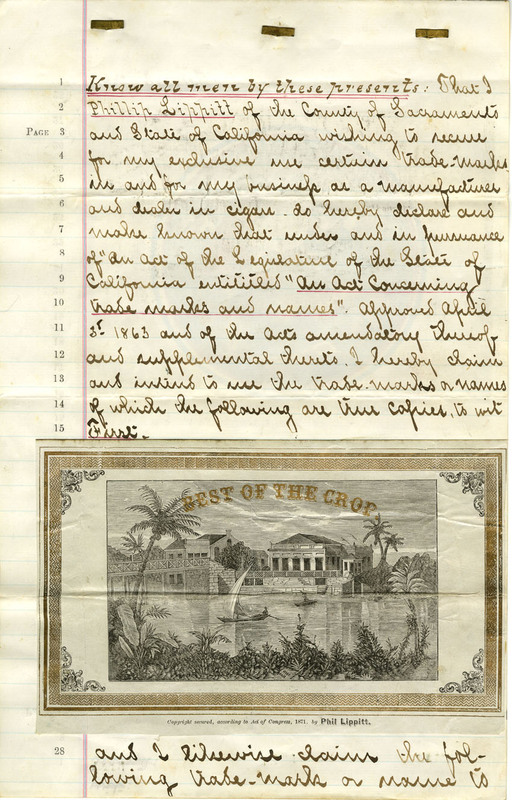 1 Know all men by these presents: That I
2 Phillip Lippitt of the County of Sacramento
PAGE 3 and State of California wishing to secure
4 for my exclusive use certain trade-marks
5 in and for my business as a manufacturer
6 and dealer in cigars do hereby declare and
7 make known that under and in pursuance
8 of "an Act of the Legislature of the State of
9 California entitled "An Act Concerning
10 trade marks and names". Approved April
11 3r 1863 and of the Acts amendatory thereof
12 and supplemental thereto, I hereby claim
13 and intend to use the trade-marks or names
14 of which the following are true copies, to wit
15 First.
BEST OF THE CROP
Copyright secured, according to Act of Congress, 1871, by Phil Lippitt.
28 and I likewise claim the fol-
lowing trade-mark or name to